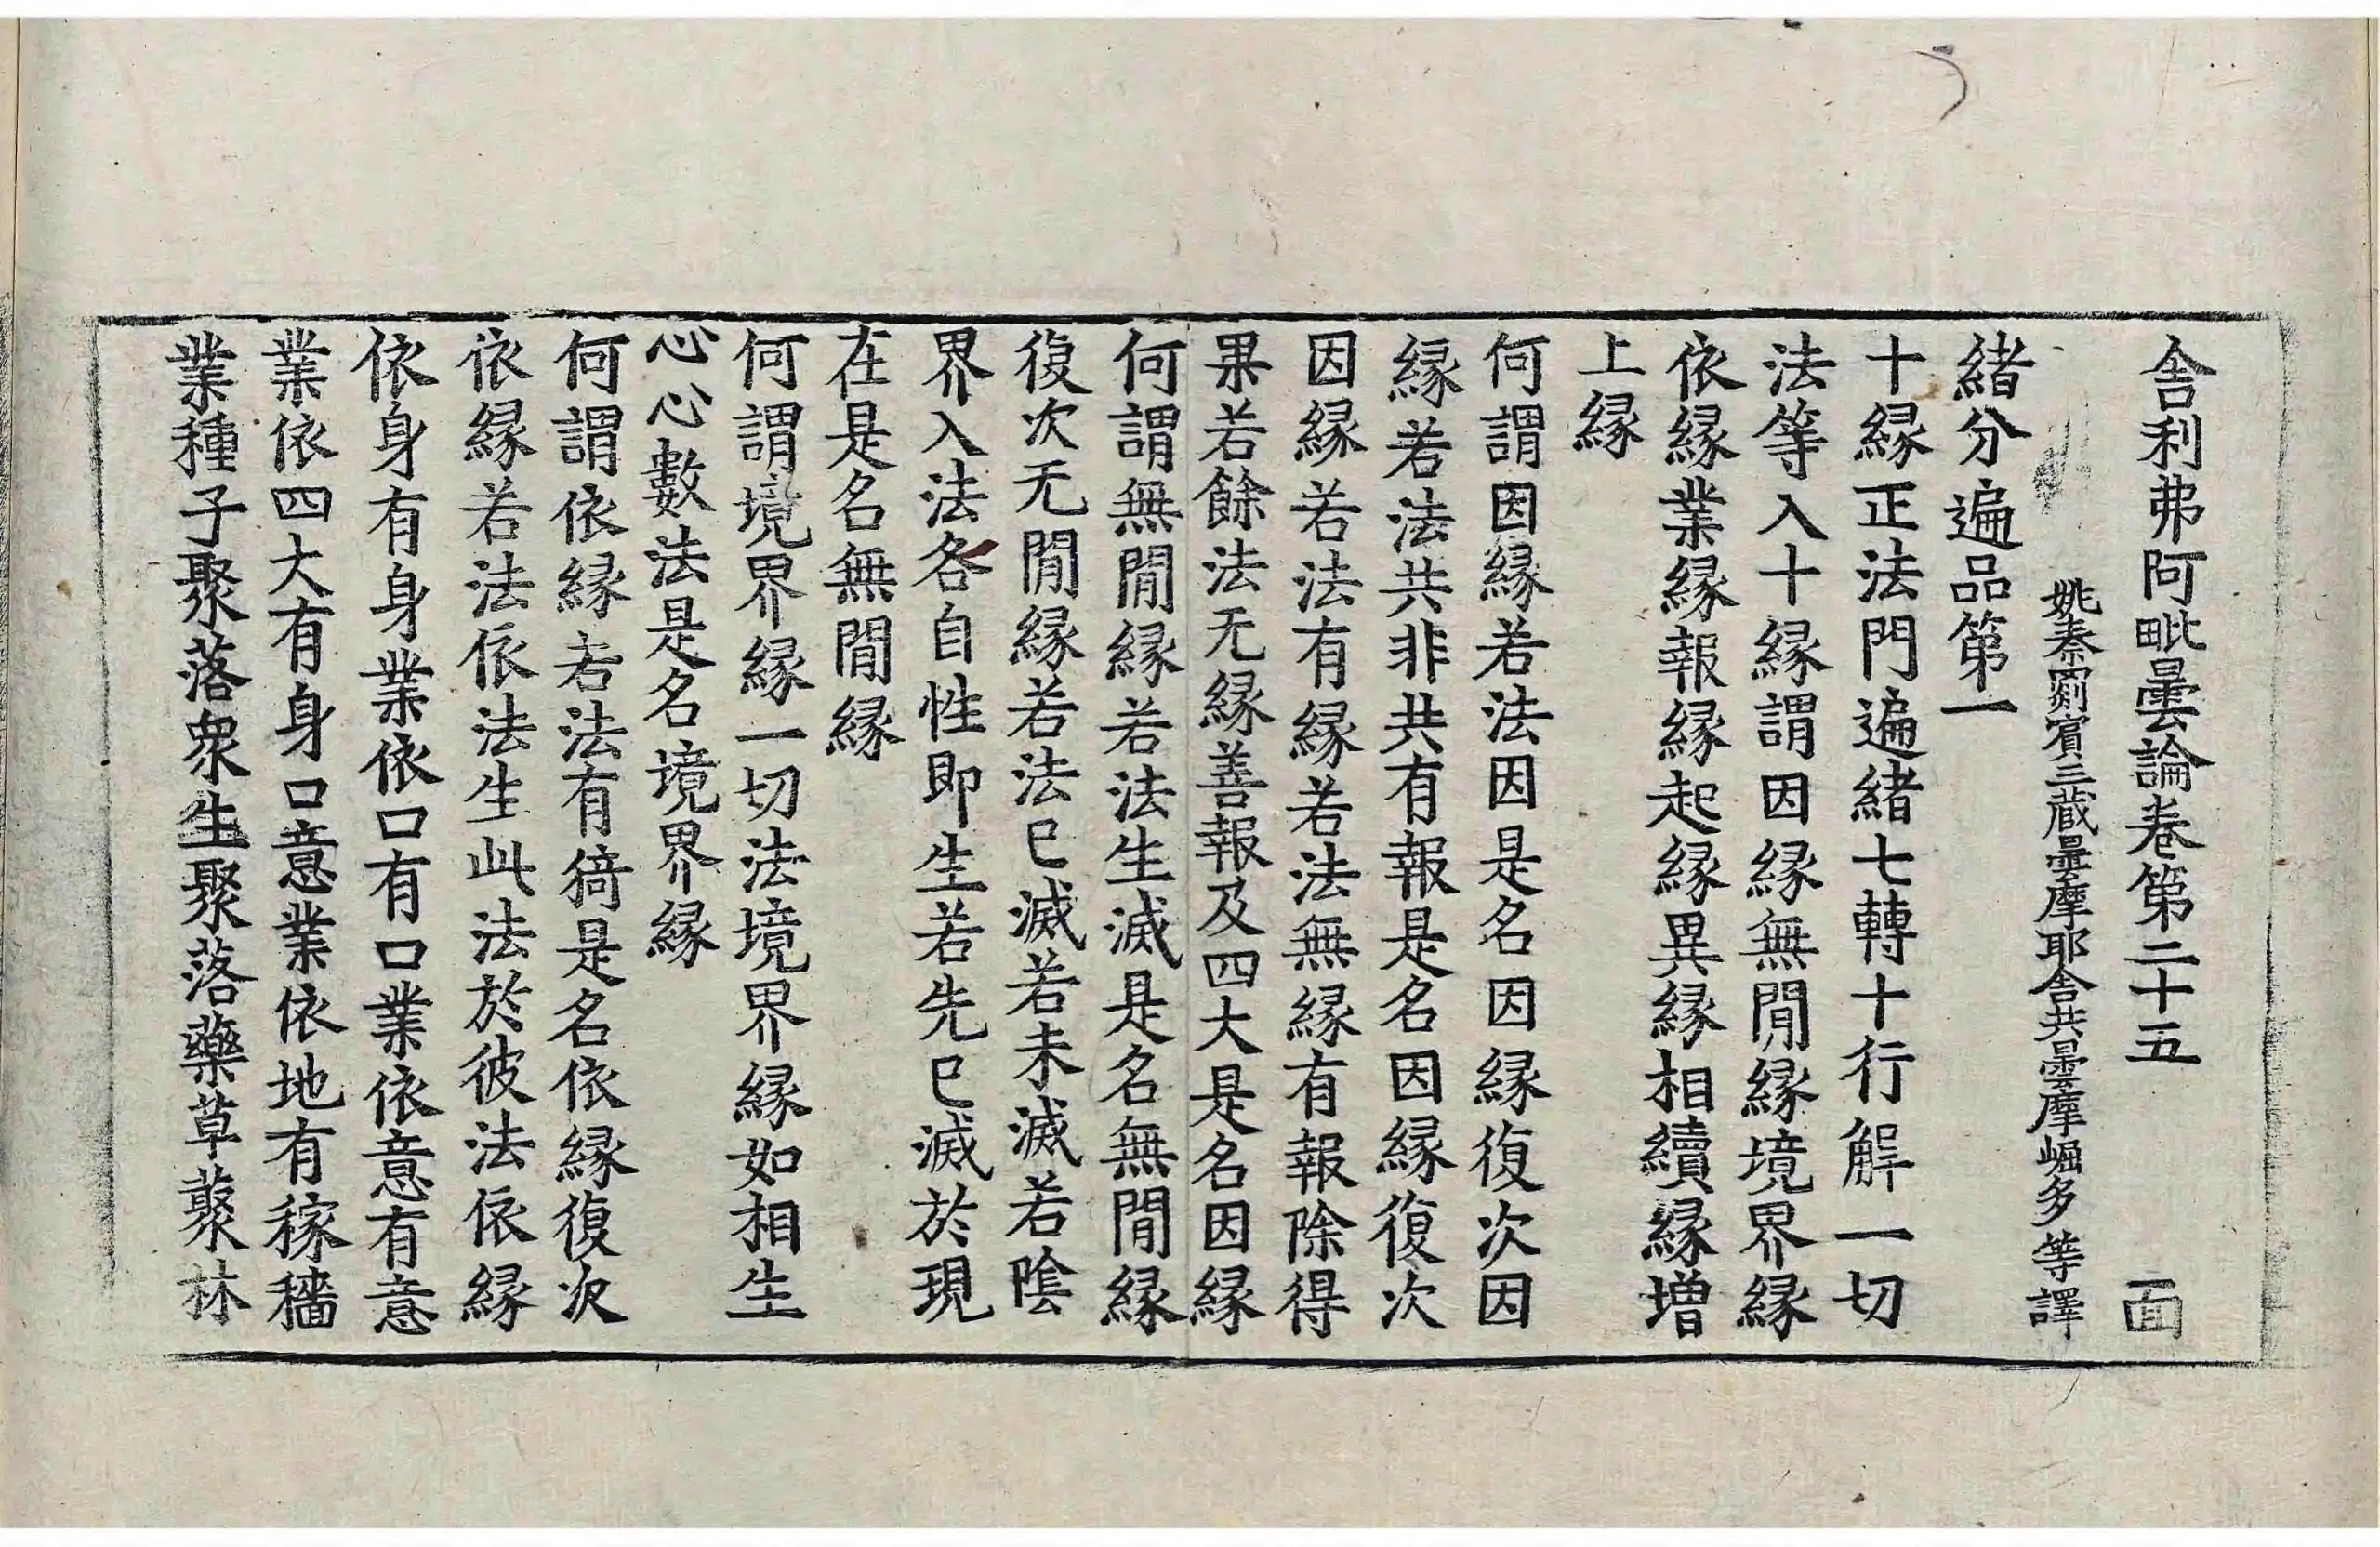 舎利弗阿毗曇論卷第二十五 面
姚秦罽賓三蔵曇摩耶舎共曇摩崛多等譯
緒分遍品第一
十縁正法門遍緒七轉十行解一切
法等入十縁謂因縁無閒縁境界縁
依縁業縁報縁起縁異縁相續縁增
上縁
何謂因縁若法因是名因縁復次因
縁若法共非共有報是名因縁復次
因縁若法有縁若法無縁有報除得
果若餘法无縁善報及四大是名因縁
何謂無閒縁若法生滅是名無閒縁
復次无閒縁若法巳滅若未滅若陰
界入法各自性即生若先巳滅於現
在是名無閒縁
何謂境界縁一切法境界縁如相生
心心數法是名境界縁
何謂依縁若法有猗是名依縁復次
依縁若法依法生此法於彼法依縁
依身有身業依口有口業依意有意
業依四大有身口意業依地有稼穡
業種子聚落衆生聚落藥草藂林